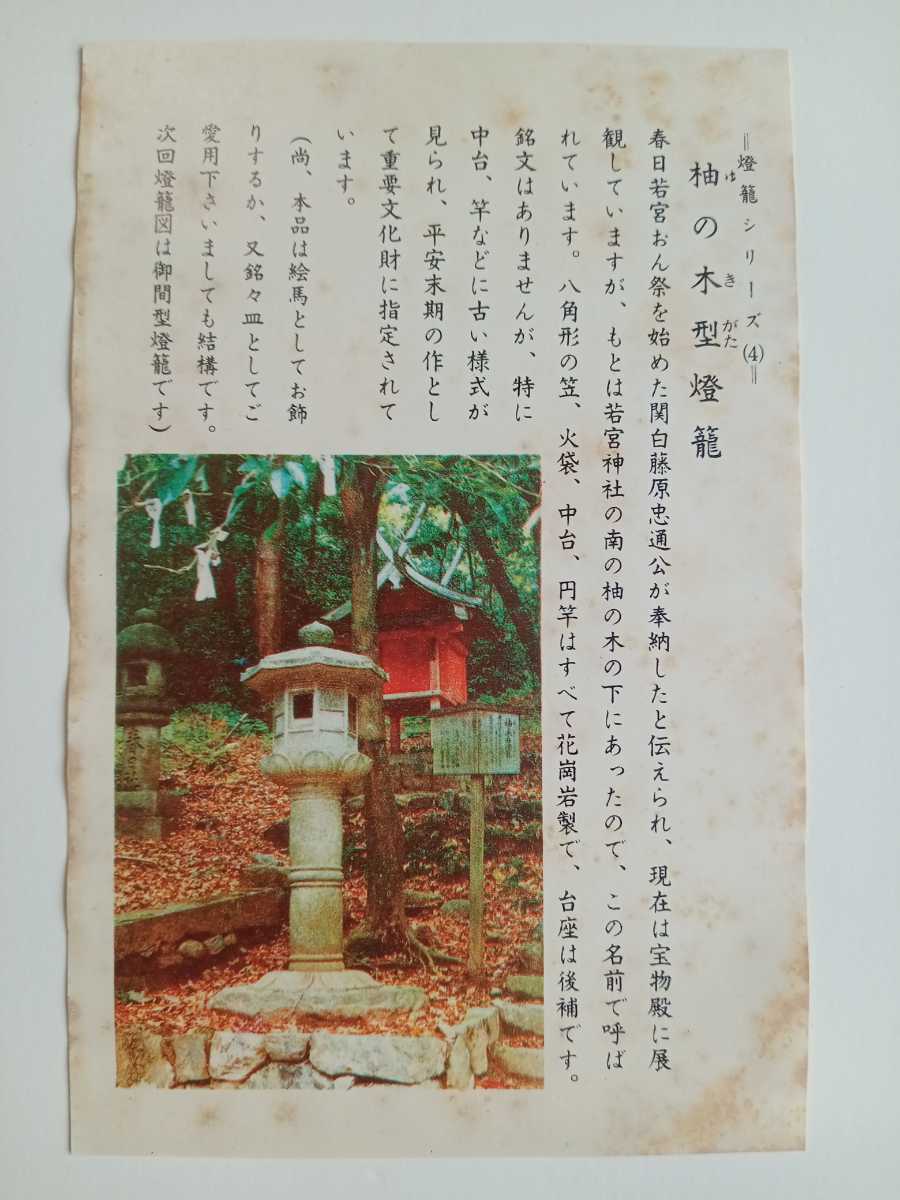 ＝燈籠シリーズ(4)＝
柚の木型燈籠
ゆ き がた
春日若宮おん祭を始めた関白藤原忠通公が奉納したと伝えられ、現在は宝物殿に展
観していますが、もとは若宮神社の南の柚の木の下にあったので、この名前で呼ば
れています。八角形の笠、火袋、中台、円竿はすべて花崗岩製で、台座は後補です。
銘文はありませんが、特に
中台、竿などに古い様式が
見られ、平安末期の作とし
て重要文化財に指定されて
います。
(尚、本品は絵馬としてお飾
りするか、又銘々皿としてご
愛用下さいましても結構です。
次回燈籠図は御間型燈籠です)